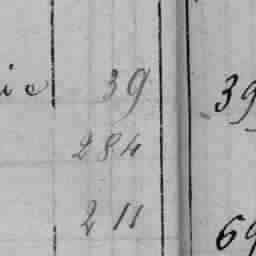 ic 39 39
284
211 69